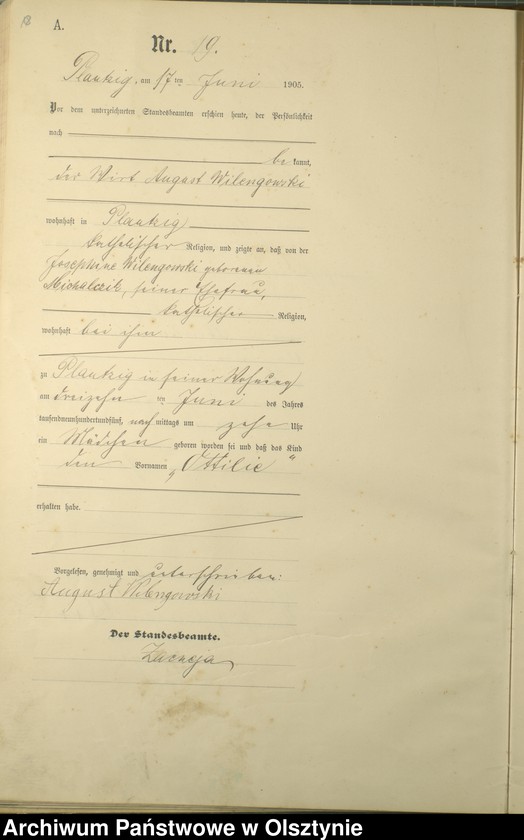 A.
Nr. 19.
Plautzig, am 17ten Juni 1905.
Vor dem unterzeichneten Standesbeamten erschien heute, der Persönlichkeit
nach
be kannt,
der Wirt August Wilengowski
wohnhaft in Plautzig
katholischer Religion, und zeigte an, daß von der
Josephine Wilengowski geborenen
Michalczik, seiner Ehefrau,
katholischer Religion,
wohnhaft bei ihm
zu Plautzig in seiner Wohnung
am dreizehn ten Juni des Jahres
tausendneunhundertundfünf, nach mittags um zehn Uhr
ein Mädchen geboren worden sei und daß das Kind
den Vornamen „Ottilie“
erhalten habe.
Vorgelesen, genehmigt und unterschrieben:
August Wilengowski
Der Standesbeamte.
Archiwum Państwowe w Olsztynie